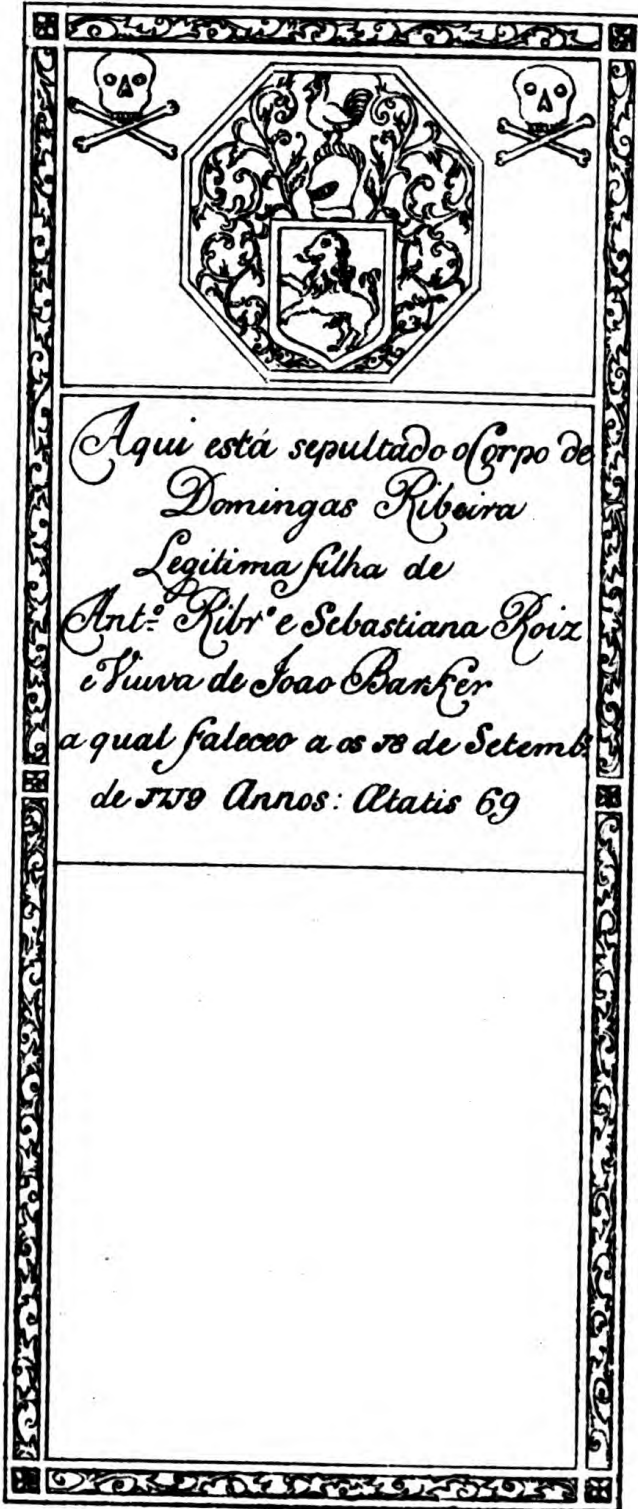 Aqui está sepultado o Corpo de
Domingas Ribeira
Legitima filha de
Ant.º Ribr.º e Sebastiana Roiz
e Viuva de Joao Barker
a qual faleceo a os 18 de Setemb.
de 1719 Annos: Ætatis 69